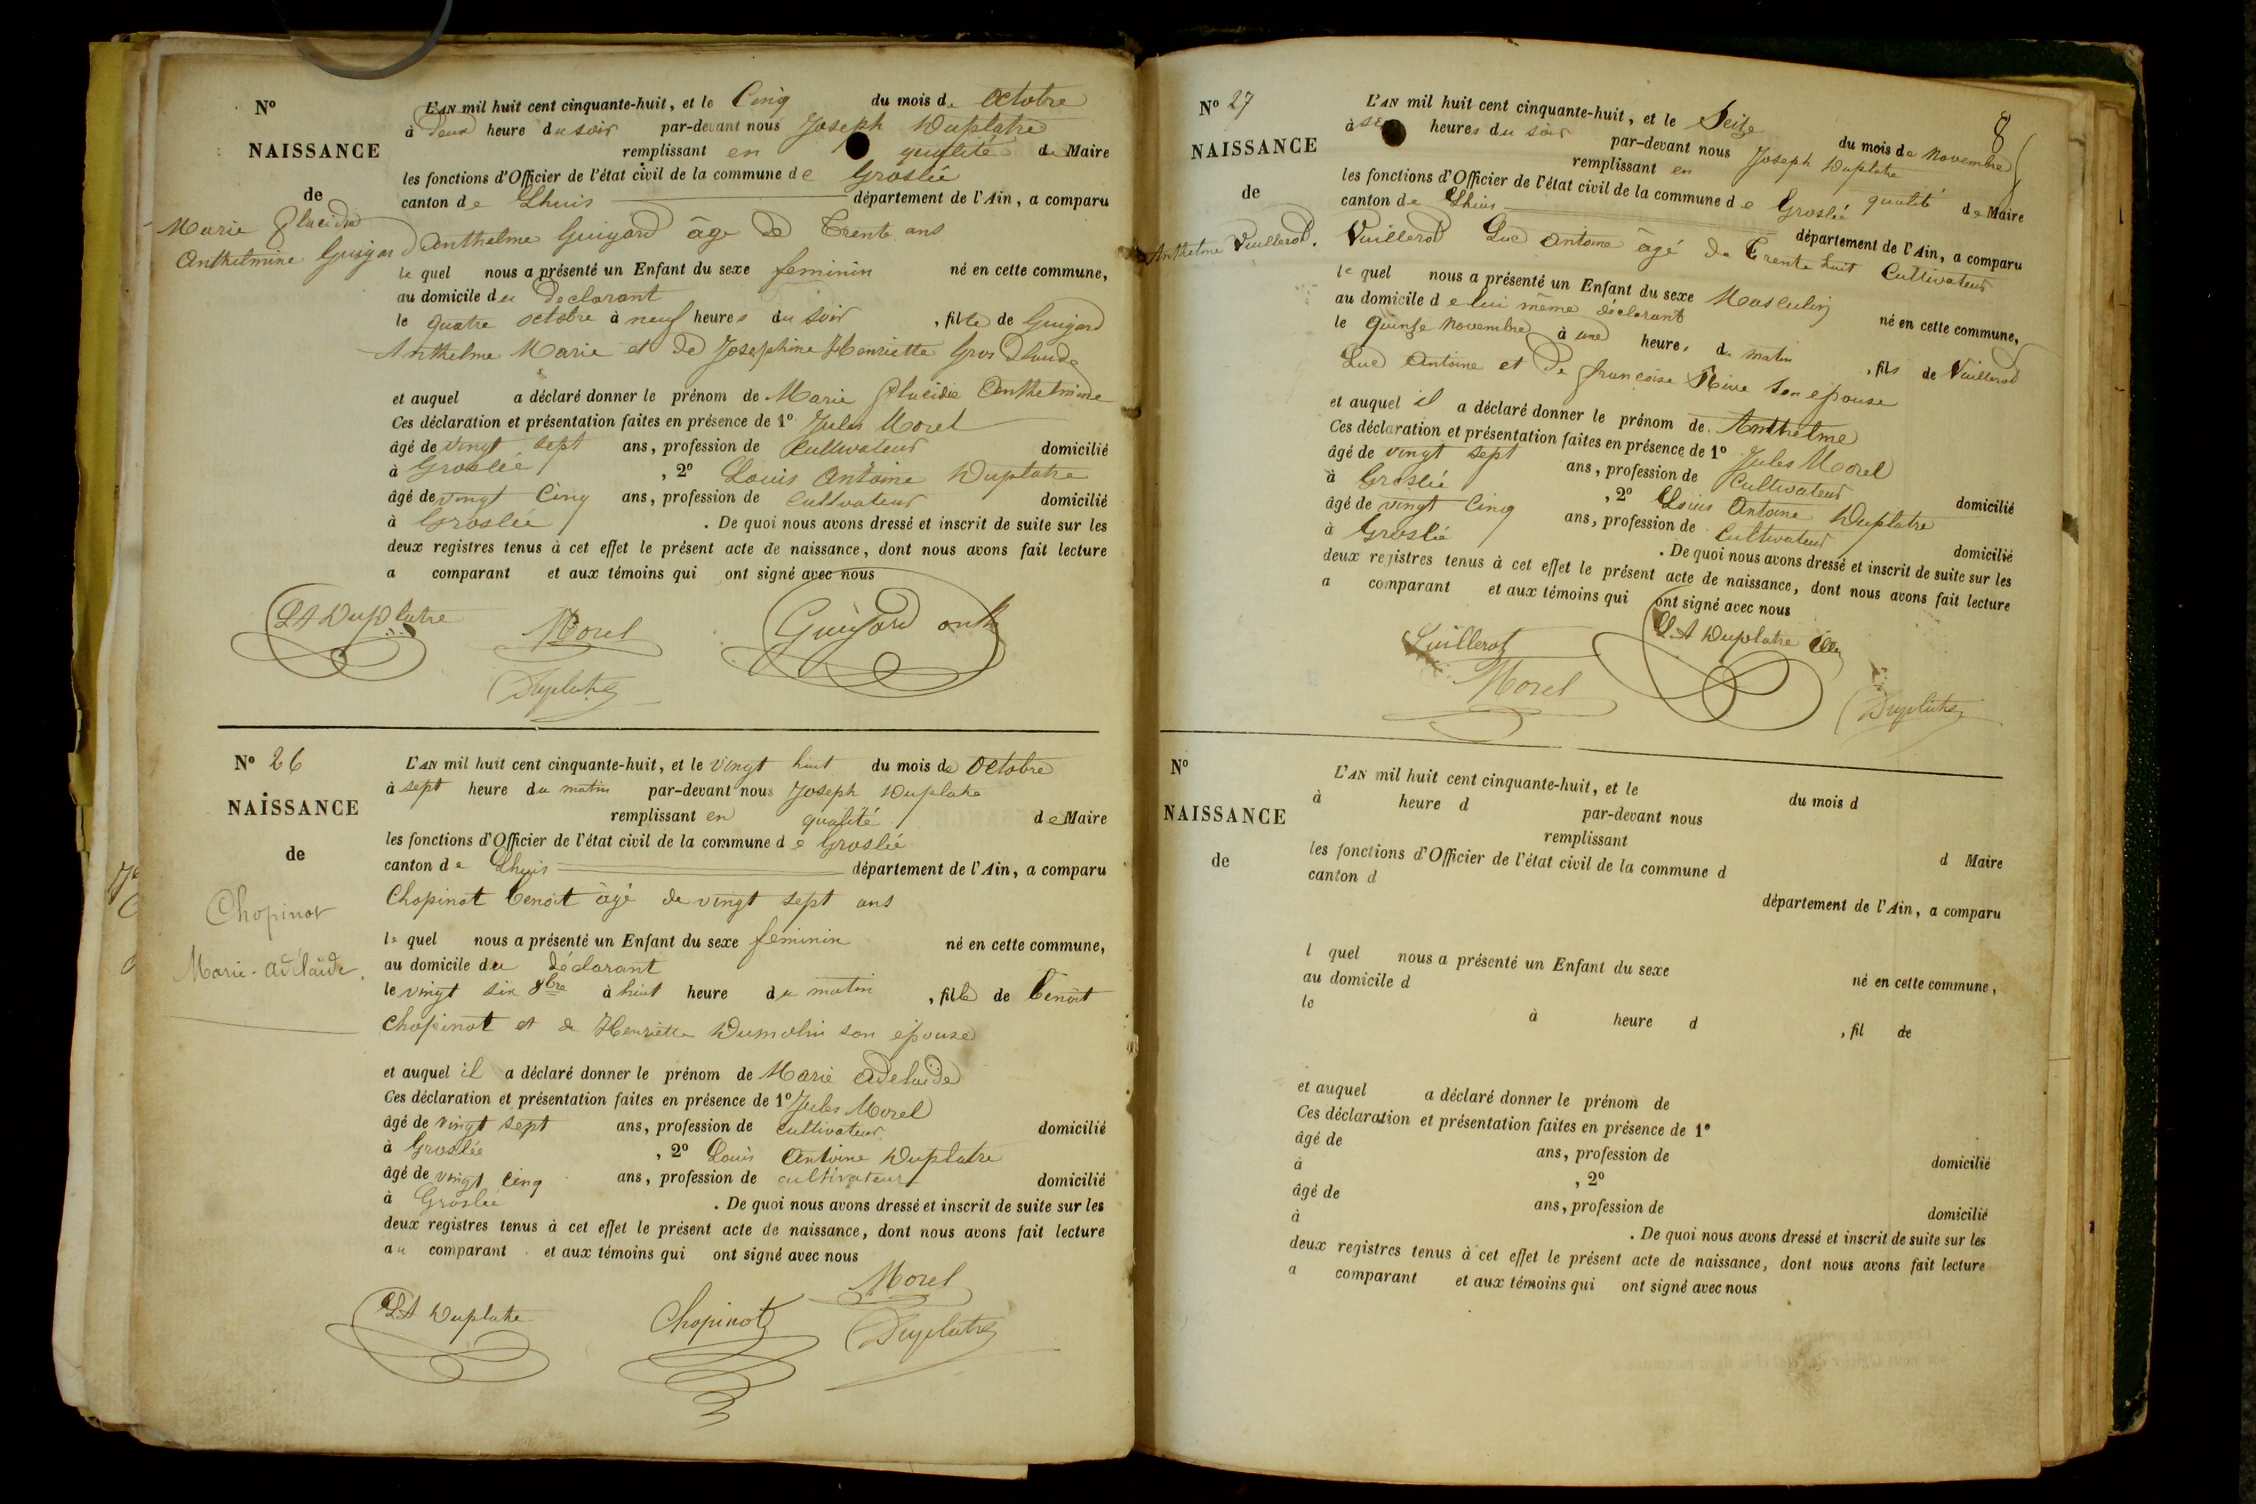 Nº
NAISSANCE
de
Marie Placidie
Anthelmine Guigard
L'AN mil huit cent cinquante-huit, et le Cinq du mois de Octobre
à Deux heure du soir par-devant nous Joseph Duplatre
remplissant en qualité de Maire
les fonctions d'Officier de l'état civil de la commune de Groslée
canton de Lhuis département de l'Ain, a comparu
Anthelme Guigard âge de Trente ans
le quel nous a présenté un Enfant du sexe feminin né en cette commune,
au domicile du Declarant
le quatre octobre à neuf heures du soir, fille de Guigard
Anthelme Marie et de Josephine Henriette Gros
et auquel a déclaré donner le prénom de Marie Placidie Anthelmine
Ces déclaration et présentation faites en présence de 1º Jules Morel
âgé de vingt sept ans, profession de Cultivateur domicilié
à Groslée, 2º Louis Antoine Duplatre
âgé de vingt Cinq ans, profession de Cultivateur domicilié
à Groslée. De quoi nous avons dressé et inscrit de suite sur les
deux registres tenus à cet effet le présent acte de naissance, dont nous avons fait lecture
a comparant et aux témoins qui ont signé avec nous
LA Duplatre Morel Guigard anth
Duplatre
Nº 26
NAISSANCE
de
Chopinot
Marie-adélaide.
L'AN mil huit cent cinquante-huit, et le vingt huit du mois de Octobre
à sept heure du matin par-devant nous Joseph Duplatre
remplissant en qualité de Maire
les fonctions d'Officier de l'état civil de la commune de Groslée
canton de Lhuis département de l'Ain, a comparu
Chopinot Benoit âgé de vingt sept ans
le quel nous a présenté un Enfant du sexe féminin né en cette commune,
au domicile du déclarant
le vingt six 8bre à huit heure du matin, fille de Benoit
Chopinot et de Henriette Dumolin son épouse
et auquel il a déclaré donner le prénom de Marie adelaide
Ces déclaration et présentation faites en présence de 1º Jules Morel
âgé de vingt sept ans, profession de cultivateur domicilié
à Groslée, 2º Louis Antoine Duplatre
âgé de vingt cinq ans, profession de cultivateur domicilié
à Groslée. De quoi nous avons dressé et inscrit de suite sur les
deux registres tenus à cet effet le présent acte de naissance, dont nous avons fait lecture
au comparant et aux témoins qui ont signé avec nous
Morel
LA Duplatre Chopinot Duplatre
8
Nº 27
NAISSANCE
de
Anthelme Vuillerod.
L'AN mil huit cent cinquante-huit, et le Seize du mois de Novembre
à heures du soir par-devant nous Joseph Duplatre
remplissant en qualité de Maire
les fonctions d'Officier de l'état civil de la commune de Groslée
canton de Lhuis département de l'Ain, a comparu
Vuillerod Luc Antoine âgé de Trente huit Cultivateur
le quel nous a présenté un Enfant du sexe Masculin né en cette commune,
au domicile de lui même déclarant
le Quinze Novembre à une heures du matin, fils de Vuillerod
Luc Antoine et De françoise Rive son epouse
et auquel il a déclaré donner le prénom de Anthelme
Ces déclaration et présentation faites en présence de 1º Jules Morel
âgé de vingt sept ans, profession de Cultivateur domicilié
à Groslée, 2º Louis Antoine Duplatre
âgé de vingt Cinq ans, profession de Cultivateur domicilié
à Groslée. De quoi nous avons dressé et inscrit de suite sur les
deux registres tenus à cet effet le présent acte de naissance, dont nous avons fait lecture
a comparant et aux témoins qui ont signé avec nous
Vuillerot LA Duplatre
Morel Duplatre
Nº
NAISSANCE
de
L'AN mil huit cent cinquante-huit, et le du mois d
à heure d par-devant nous
remplissant d Maire
les fonctions d'Officier de l'état civil de la commune d
canton d département de l'Ain, a comparu
l quel nous a présenté un Enfant du sexe né en cette commune,
au domicile d
le à heure d, fil de
et auquel a déclaré donner le prénom de
Ces déclaration et présentation faites en présence de 1º
âgé de ans, profession de domicilié
à, 2º
âgé de ans, profession de domicilié
à. De quoi nous avons dressé et inscrit de suite sur les
deux registres tenus à cet effet le présent acte de naissance, dont nous avons fait lecture
a comparant et aux témoins qui ont signé avec nous